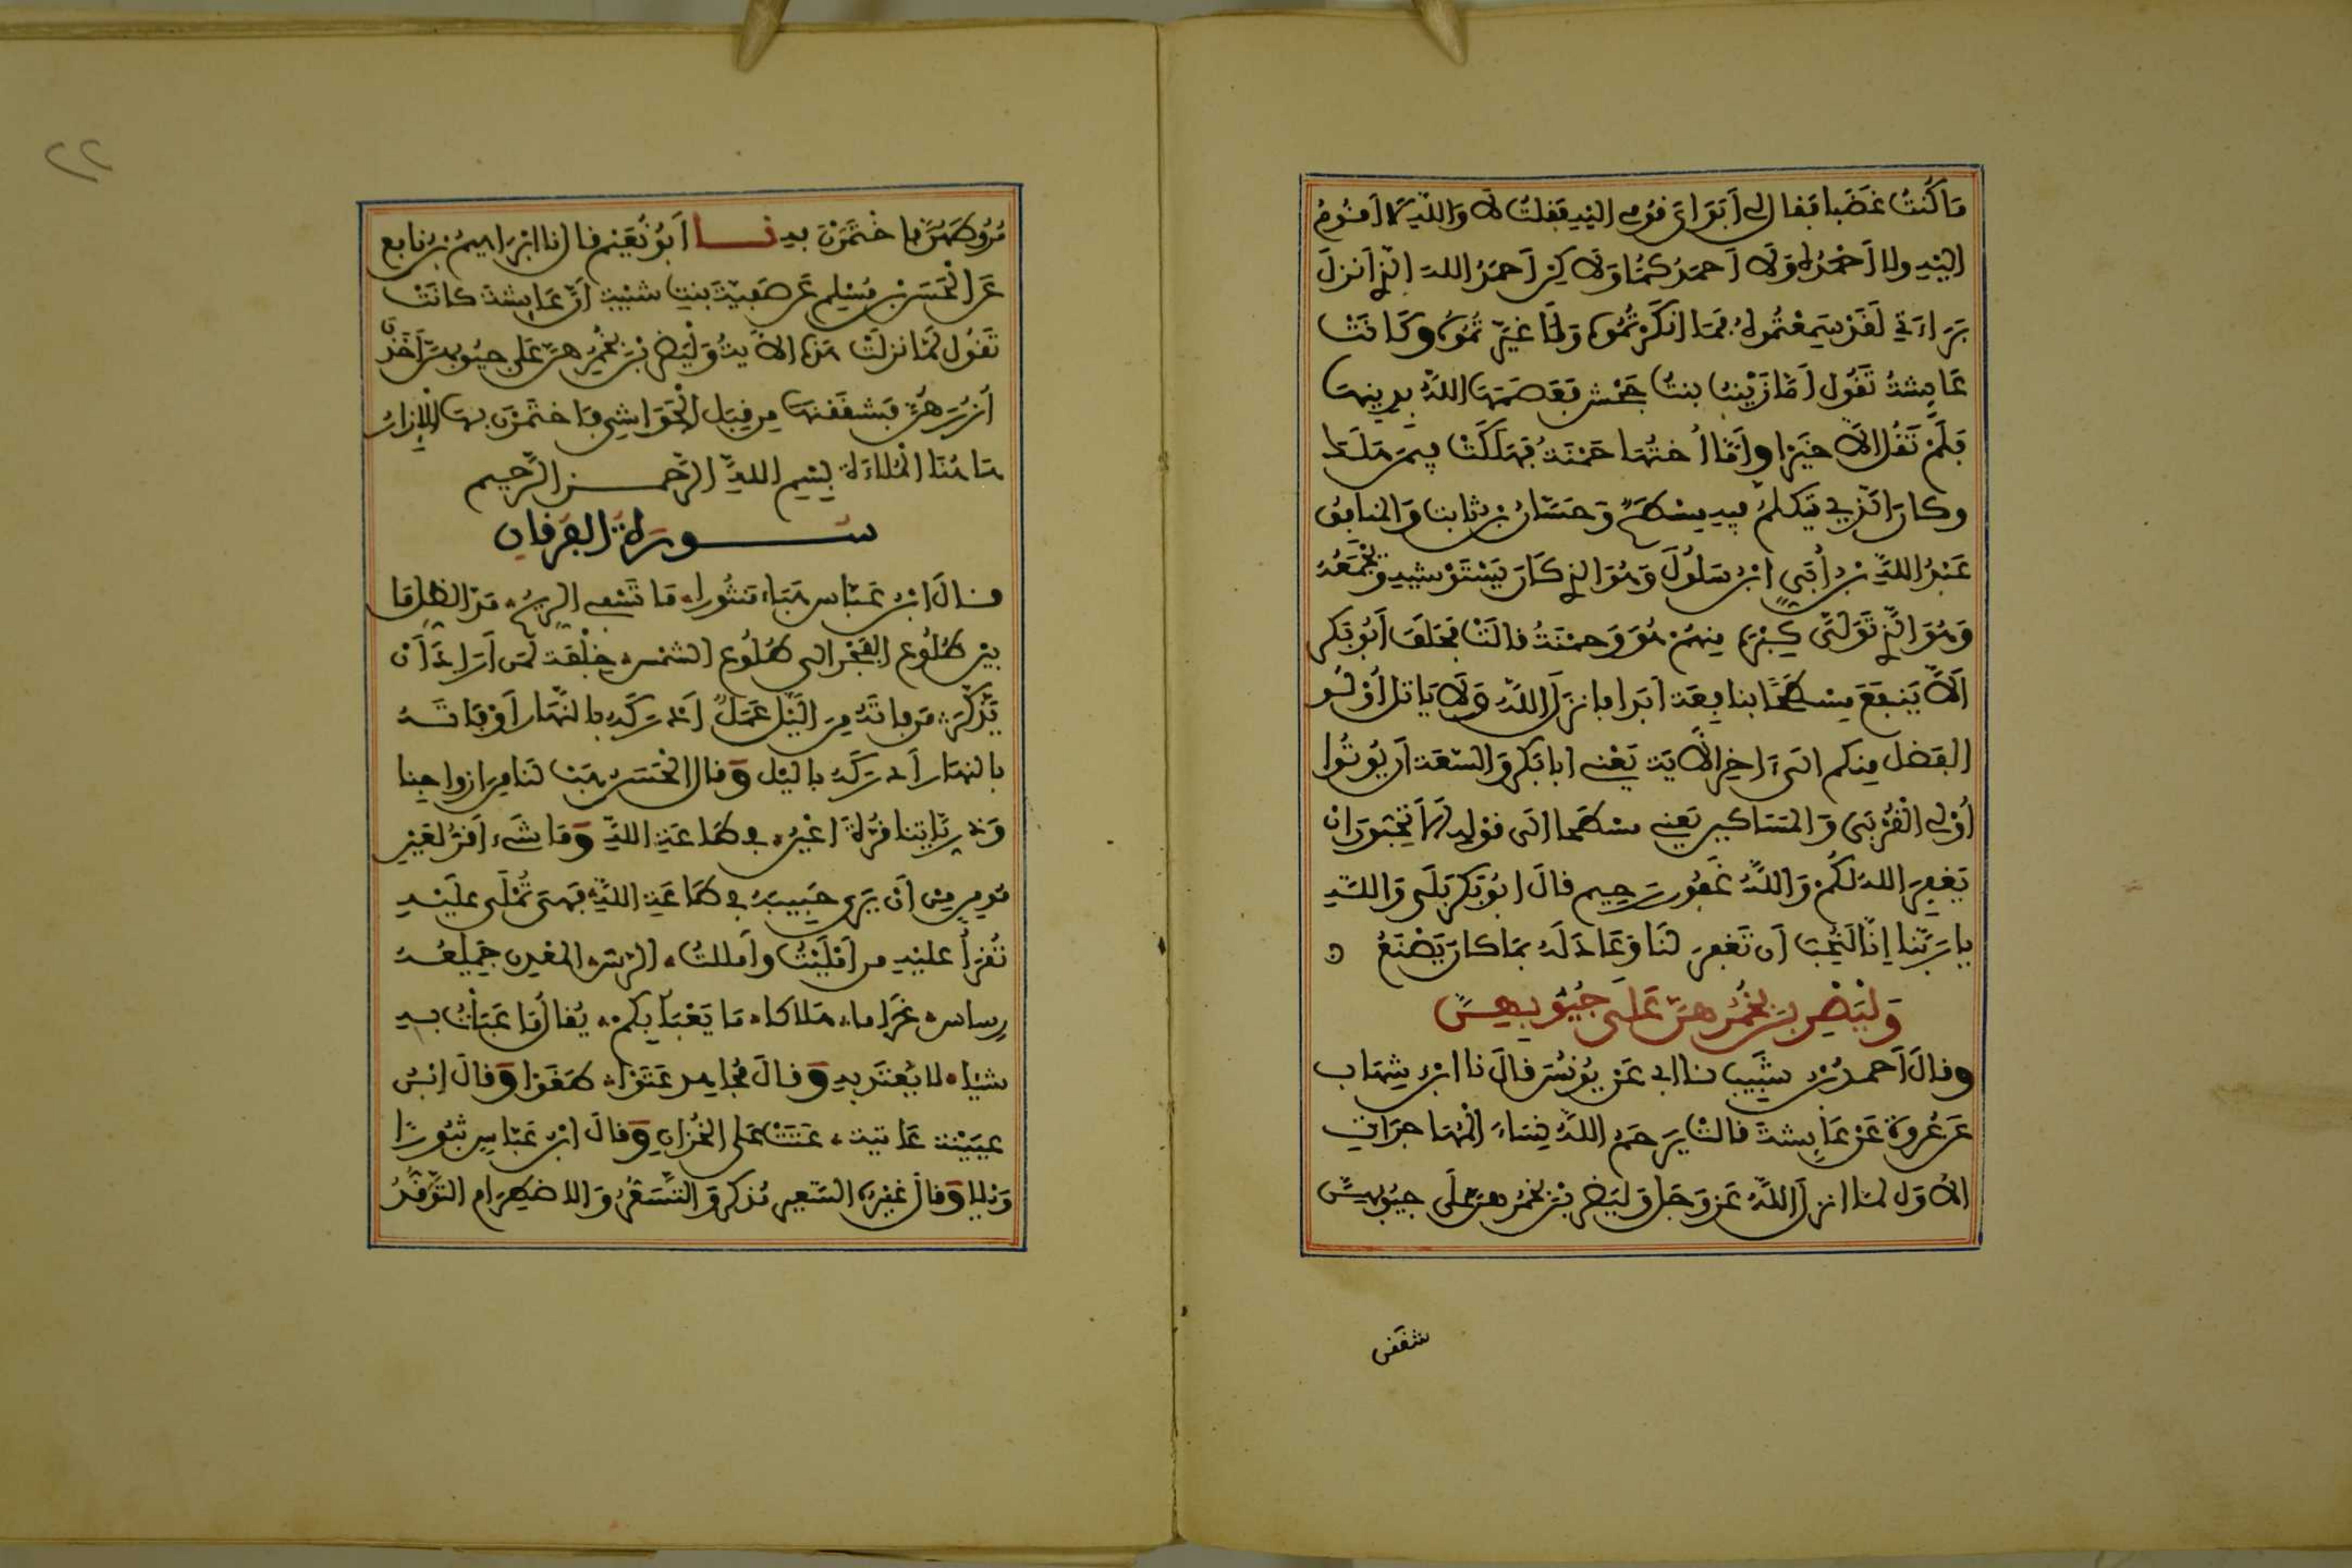 ما كُنتُ غضبا فقال لي أبواي قومي إليه فقلت لا والله لا أقوم
إليه ولا أحمده ولا أحمدكما ولاكن أحمد الله الذي أنزل
براءتي لقد سمعتموه فما أنكرتموه ولا غيرتموه وكانت
عائشة تقول أما زينب بنت جحش فعصمها الله بدينها
فلم تقل الا خيرا وأما أختها حمنة فهلكت فيمن هلك
وكان الذي يتكلم فيه مسطح وحسان بن ثابت والمنافق
عبد الله بن أبي ابن سلول وهو الذي كان يستوشيه ويجمعه
وهو الذي تولى كبره منهم هو وحمنة قالت فحلف أبو بكر
ألا ينفع مسطحا بنافعة أبدا فانزل الله ولا ياتل أولو
الفضل منكم الى ءاخر الآية يعني أبا بكر والسعة ان يوتوا
أولي القربى والمساكين يعني مسطحا الى قوله ألا تحبون ان
يغفر الله لكم والله غفور رحيم قال ابو بكر بلى والله
يا ربنا إنا لنحب أن تغفر لنا وعاد له بما كان يصنع
وليضربن بخمرهن على جيوبهن
وقال أحمد بن شبيب نا ابي عن يونس قال نا ابن شهاب
عن عروة عن عائشة قالت يرحم الله نساء المهاجرات
الأول لما انزل الله عز وجل وليضربن بخمرهن على جيوبهن
شققن
مروطهن فاختمرن به نا أبو نعيم قال نا ابراهيم بن نافع
عن الحسن بن مسلم عن صفية بنت شيبة أن عائشة كانت
تقول لما نزلت هذه الاية وليضربن بخمرهن على جيوبهن أخذن
أزرهن فشققنها من قبل الحواشي فاختمرن بها الإزار
هاهنا الملاءة بسم الله الرحمن الرحيم
سورة الفرقان
قال ابن عباس هباء منثورا ما تسفي الريح مد الظل ما
بين طلوع الفجر الى طلوع الشمس خلفة لمن أراد أن
يذكر من فاته من اليل عمل أدركه بالنهار أو فاته
بالنهار أدركه باليل وقال الحسن هب لنا من ازواجنا
وذرياتنا قرة أعين في طاعة الله وما شيء أقر لعين
مومن من أن يرى حبيبه في طاعة الله فهي تملى عليه
تقرأ عليه من أمليت وأمللت الرس المعدن جميعه
رساس غراما هلاكا ما يعبأ بكم يقال ما عبأت به
شيئا لا يعتد به وقال مجاهد عتوا طغوا وقال ابن
عيينة عاتية عتت على الخزان وقال ابن عباس ثبورا
ويلا وقال غيره السعير مذكر والتسعر والاضطرام التوقد
٢٢